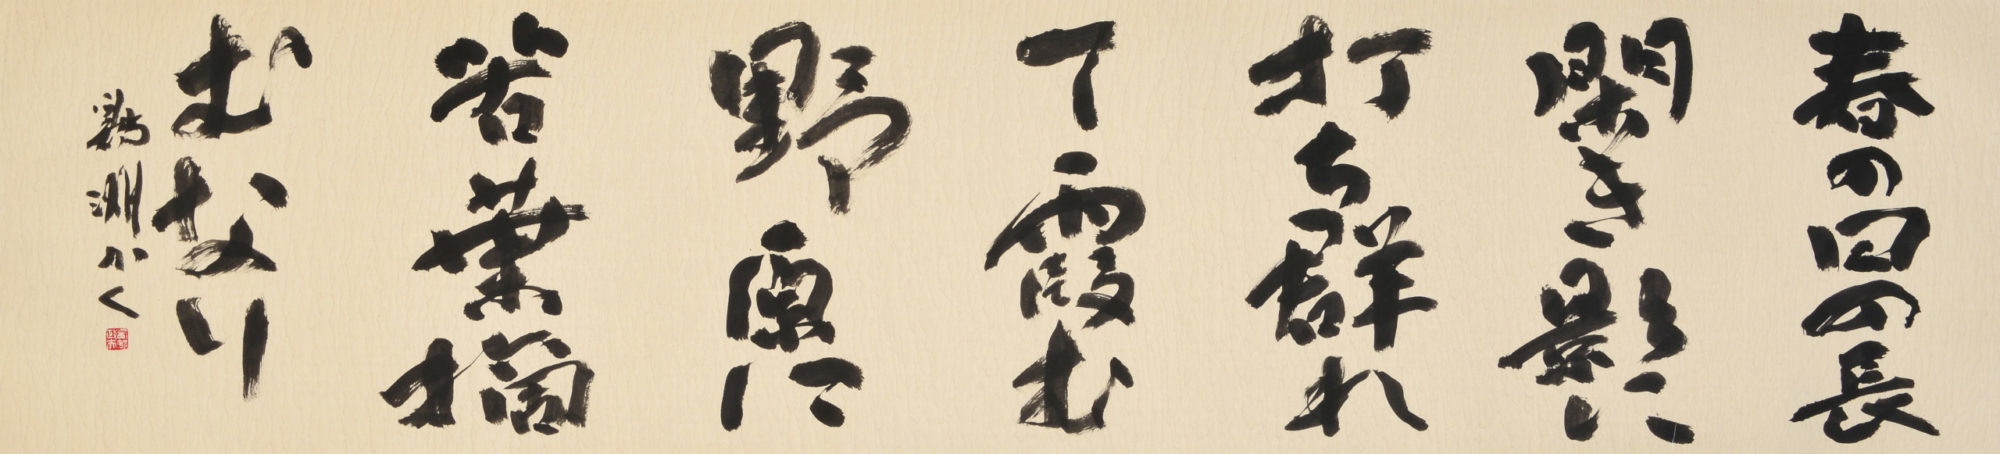 春の日の長
閑き影に
打ち群れ
て霞む
野原に
若葉摘
むなり